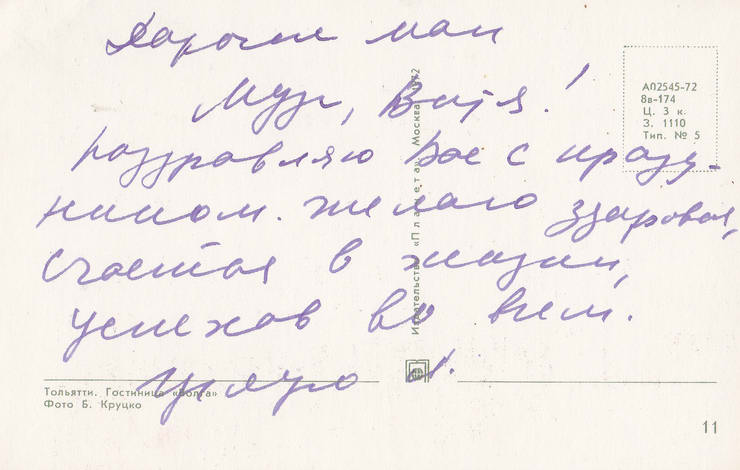 Дорогие мои
Витя!
поздравляю Вас с празд-
ником. Желаю здоровья,
счастья в жизни,
успехов во всем.
Целую
А02545-72
8в-174
Ц. 3 к.
З. 1110
Тип. № 5
Издательство «Планета» Москва 1972
Тольятти. Гостиница «Волга»
Фото Б. Круцко
11